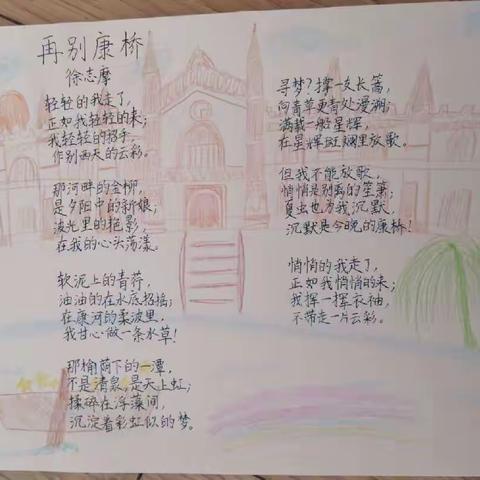 再别康桥
徐志摩
轻轻的我走了,
正如我轻轻的来;
我轻轻的招手,
作别西天的云彩。
那河畔的金柳,
是夕阳中的新娘;
波光里的艳影,
在我的心头荡漾。
软泥上的青荇,
油油的在水底招摇;
在康河的柔波里,
我甘心做一条水草!
那榆荫下的一潭,
不是清泉,是天上虹;
揉碎在浮藻间,
沉淀着彩虹似的梦。
寻梦?撑一支长篙,
向青草更青处漫溯;
满载一船星辉,
在星辉斑斓里放歌。
但我不能放歌,
悄悄是别离的笙箫;
夏虫也为我沉默,
沉默是今晚的康桥!
悄悄的我走了,
正如我悄悄的来;
我挥一挥衣袖,
不带走一片云彩。